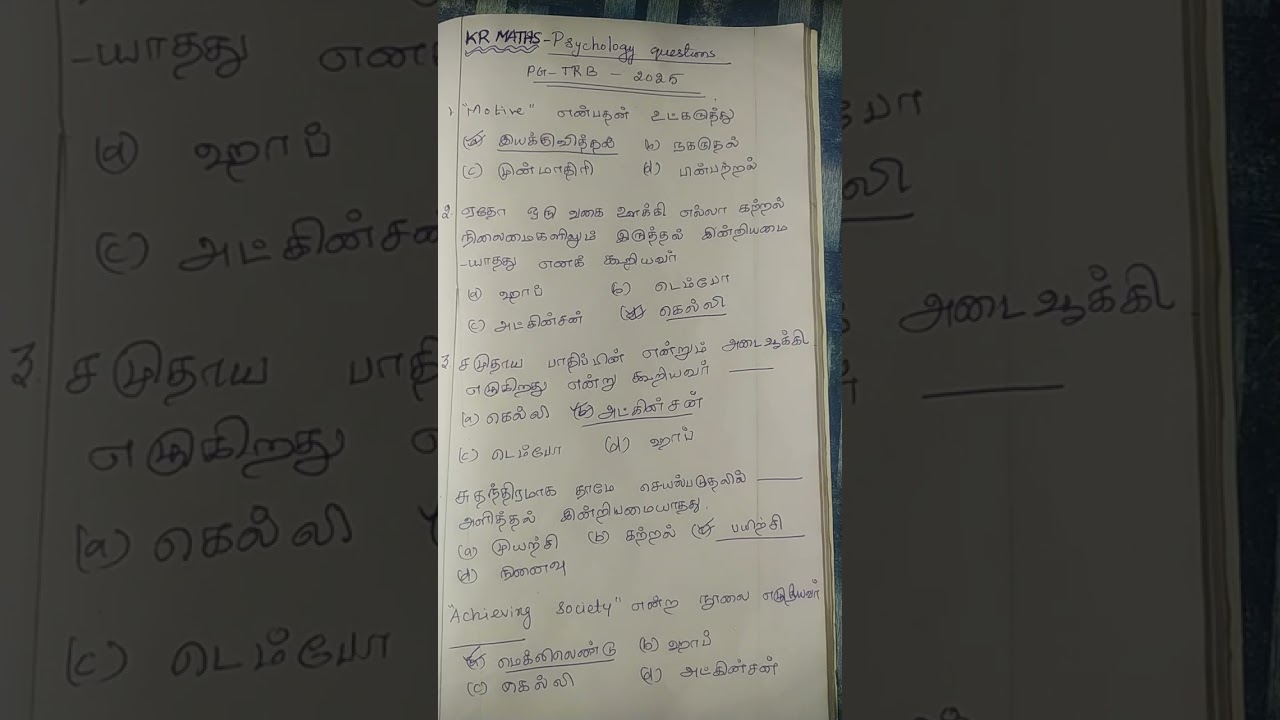 KR MATHS - Psychology questions
PG-TRB - 2025
1. "Motive" என்பதன் உட்கருத்து
(a) இயக்குவித்தல் (b) நகருதல்
(c) முன்மாதிரி (d) பின்பற்றல்
2. ஏதோ ஒரு வகை ஊக்கி எல்லா கற்றல்
நிலைமைகளிலும் இருத்தல் இன்றியமை
-யாதது எனக் கூறியவர்
(a) ஹாப் (b) டெம்போ
(c) அட்கின்சன் (d) கெல்லி
3. சமுதாய பாதிப்பின் என்றும் அடைவூக்கி
எழுகிறது என்று கூறியவர் ____
(a) கெல்லி (b) அட்கின்சன்
(c) டெம்போ (d) ஹாப்
சுதந்திரமாக தாமே செயல்படுதலில் ____
அளித்தல் இன்றியமையாதது.
(a) முயற்சி (b) கற்றல் (c) பயிற்சி
(d) நினைவு
"Achieving Society" என்ற நூலை எழுதியவர்
____
(a) மெக்லிலெண்டு (b) ஹாப்
(c) கெல்லி (d) அட்கின்சன்